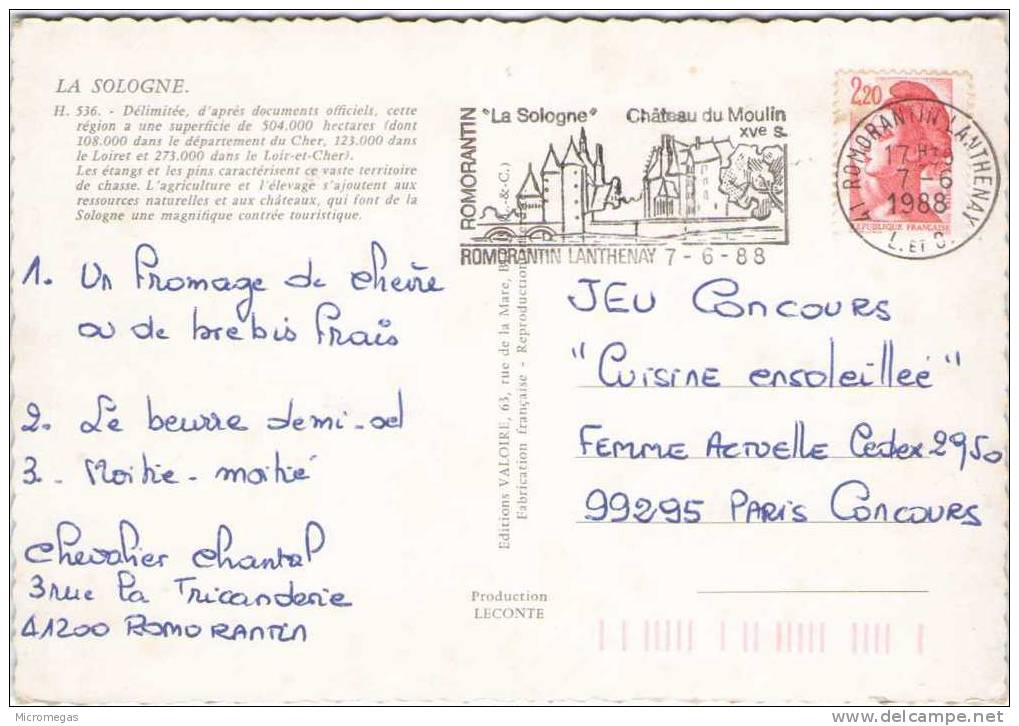 LA SOLOGNE.
H. 536. - Délimitée, d'après documents officiels, cette
région a une superficie de 504.000 hectares (dont
108.000 dans le département du Cher, 123.000 dans
le Loiret et 273.000 dans le Loir-et-Cher).
Les étangs et les pins caractérisent ce vaste territoire
de chasse. L'agriculture et l'élevage s'ajoutent aux
ressources naturelles et aux châteaux, qui font de la
Sologne une magnifique contrée touristique.
1. Un Fromage de chèvre
ou de brebis Frais
2. Le beurre demi-sel
3. - Moitié - moitié
Chevalier Chantal
3 rue La Tricanderie
41200 ROMORANTIN
ROMORANTIN
"La Sologne" Château du Moulin
XVe S.
ROMORANTIN LANTHENAY 7 - 6 - 88
Editions VALOIRE, 63, rue de la Mare,
Fabrication française - Reproduction
Production
LECONTE
2,20
REPUBLIQUE FRANÇAISE
41 ROMORANTIN LANTHENAY
17 H
7 - 6
1988
L. ET C.
JEU CONCOURS
"CUISINE ensoleilleé"
FEMME ACTUELLE Cedex 2950
99295 PARIS CONCOURS
Micromegas
delcampe.net